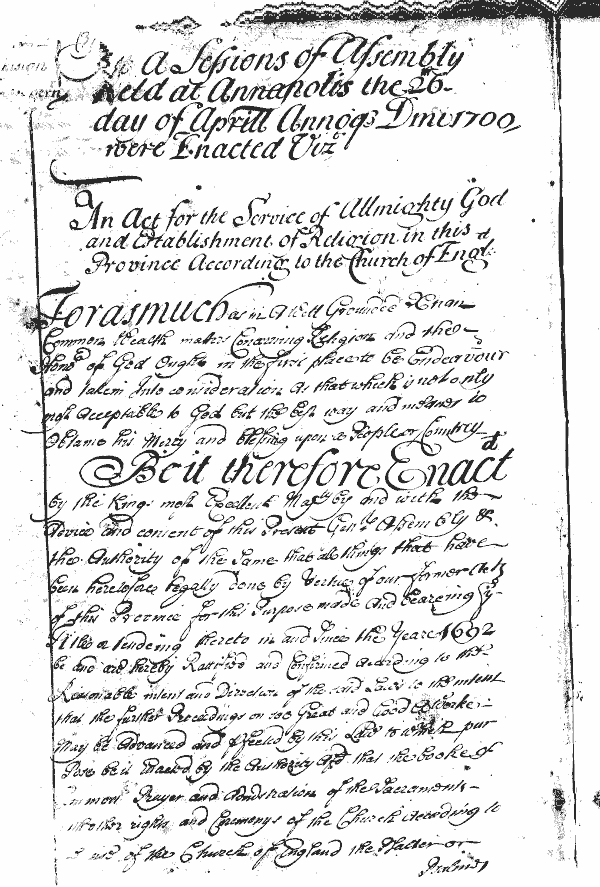 a Sessions of Assembly
held at Annapolis the 26
day of Aprill Annoqs Dmi 1700,
were Enacted Vizt
An Act for the Service of Allmighty God
and Establishment of Religion in this
Province According to the Church of Engld.
Forasmuch as in a Well Grounded
Common Wealth matters Concerning Religion and the
honor of God Ought in the first place to be Endeavour
and taken into consideration as that which is not only
most acceptable to God but the best way and meanes to
Obtaine his Mercy and blessing upon a People or Country
Be it therefore Enactd
by the Kings most Excellent Majty by and with the
Advice and consent of this Present Genll Assembly &
the Authority of the Same that all things that have
been heretofore legally done by Vertue of our former Acts
of this Province for this Purpose made and bearing ye
Title or tendeing thereto in and Since the Yeare 1692
be and are hereby Ratified and Confirmed according to the
Reasonable intent and Direction of the said Laws to the intent
that the further Proceedings on soe Great and Good a Worke
May be Advanced and Effected by this Law to which pur
Pose be it Enacted by the Authority Afd that the booke of
Common Prayer and Administration of the Sacraments
other rights and Ceremonys of the Church According to
use of the Church of England the Psalter or
Psalmes